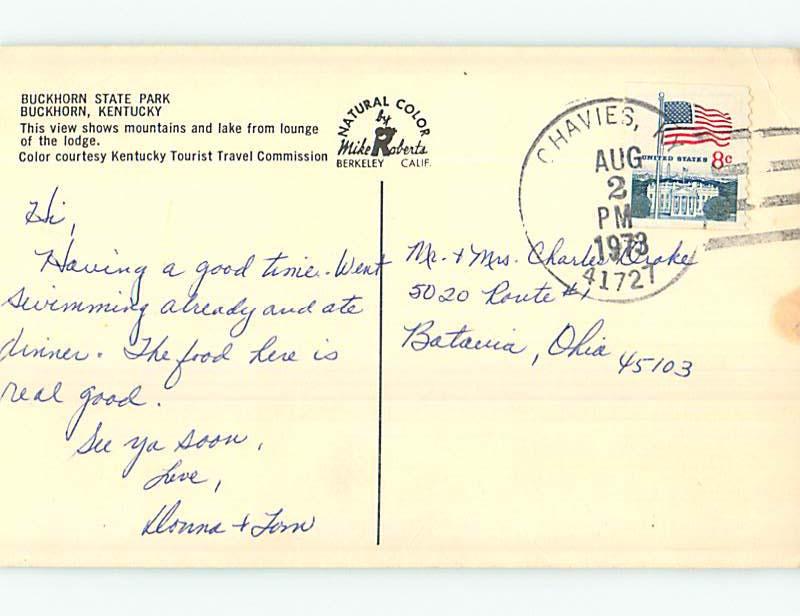 BUCKHORN STATE PARK
BUCKHORN, KENTUCKY
This view shows mountains and lake from lounge
of the lodge.
Color courtesy Kentucky Tourist Travel Commission
NATURAL COLOR
by
Mike Roberts
BERKELEY CALIF.
CHAVIES, KY
AUG
2
PM
1973
41727
UNITED STATES 8c
Hi,
Having a good time. Went
swimming already and ate
dinner. The food here is
real good.
See ya soon,
Love,
Donna + Tom
Mr. + Mrs. Charles Drake
5020 Route #1
Batavia, Ohio 45103